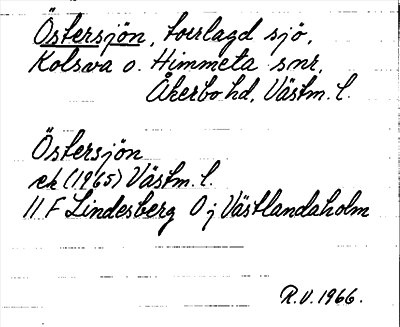 Östersjön, torrlagd sjö,
Kolsva o. Himmeta snr,
Åkerbo hd, Västm. l.
Östersjön
ek (1965) Västm. l.
11 F Lindesberg 0 j Västlandaholm
R.V. 1966.